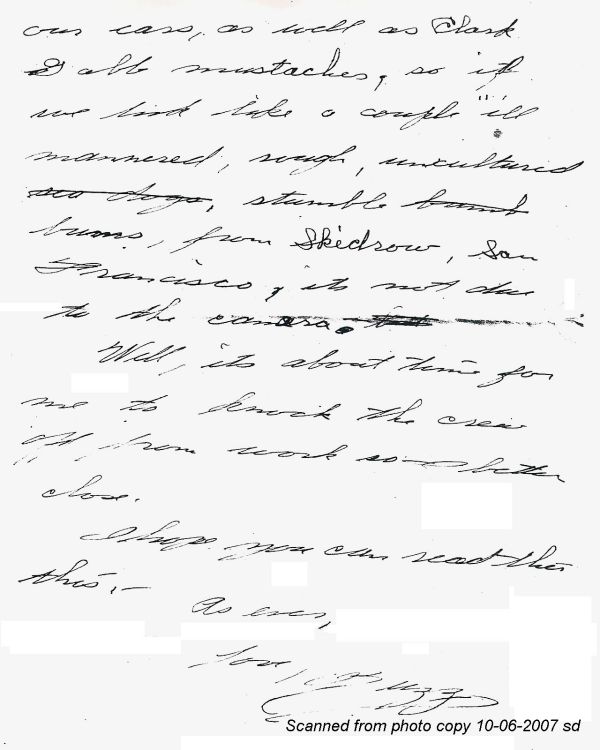 our ears, as well as Clark
Gable mustaches, so if
we look like a couple "ill
mannered, rough, uncultured
sea dogs, stumble bumb
bums, from Skidrow, San
Francisco, its not due
to the camara.
Well, its about time for
me to knock the crew
off from work so better
close.
I hope you can read this
this.—
As ever,
Love, Buzz
Scanned from photo copy 10-06-2007 sd